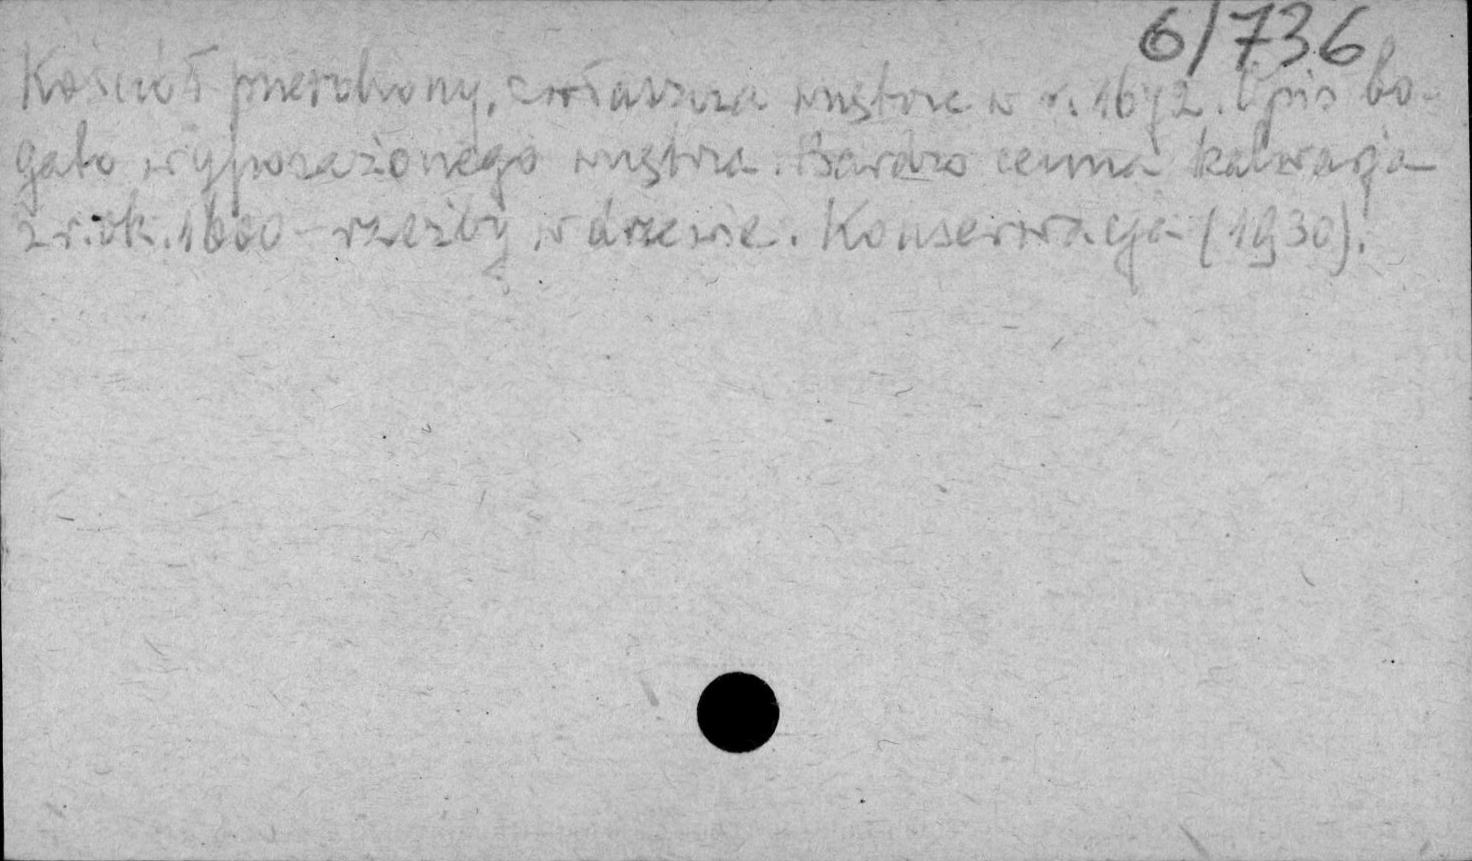 6/736
Kościół przerobiony, zwłaszcza wnętrze w r. 1672. Opis bo-
gato wyposażonego wnętrza. Bardzo cenna kalwaria
z r. ok. 1600 – rzeźby w drzewie. Konserwacja (1930).